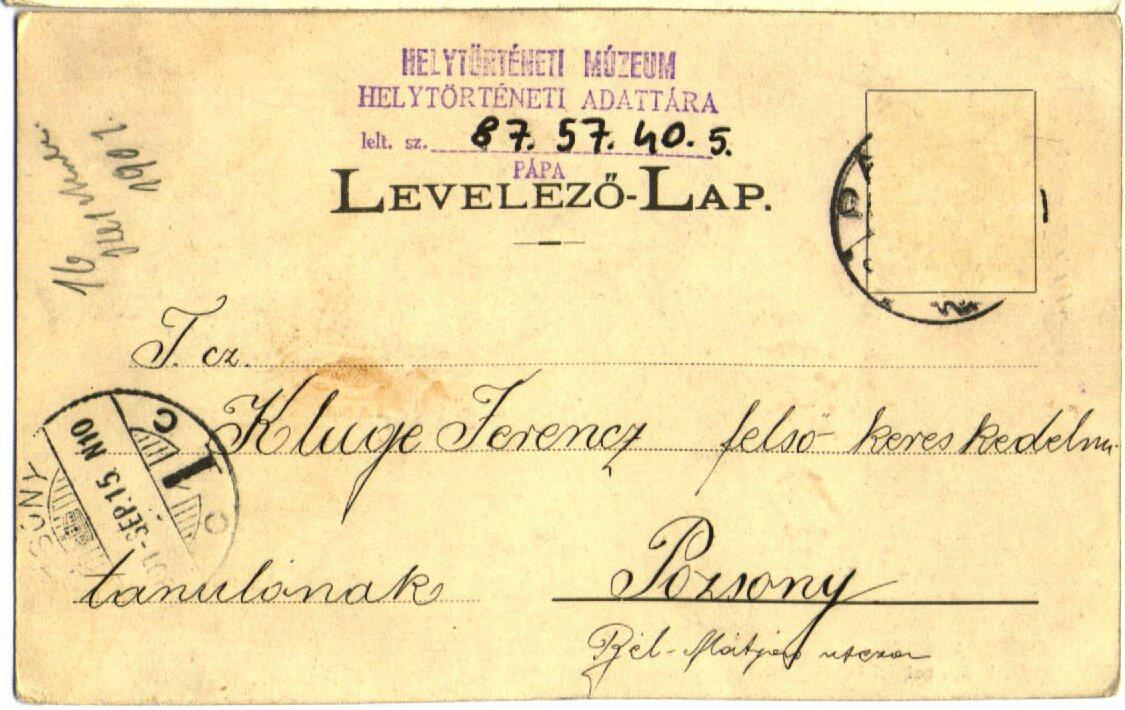 HELYTÖRTÉNETI MÚZEUM
HELYTÖRTÉNETI ADATTÁRA
lelt. sz. 87. 57. 40. 5.
PÁPA
LEVELEZŐ-LAP.
16
1901.
T. cz.
Kluge Ferencz felső kereskedelmi
tanulónak
Pozsony
Bél-Mátyás utcza
1
C
SEP. 15. N10